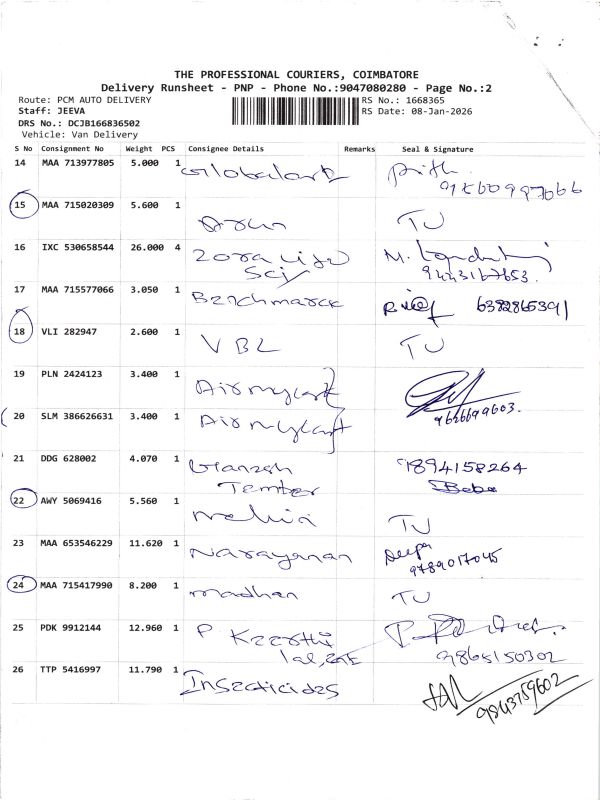 THE PROFESSIONAL COURIERS, COIMBATORE
Delivery Runsheet - PNP - Phone No.:9047080280 - Page No.:2
Route: PCM AUTO DELIVERY
Staff: JEEVA
DRS No.: DCJB166836502
Vehicle: Van Delivery
RS No.: 1668365
RS Date: 08-Jan-2026
S No Consignment No Weight PCS Consignee Details Remarks Seal & Signature
14 MAA 713977805 5.000 1
15 MAA 715020309 5.600 1 Arun TU
16 IXC 530658544 26.000 4 M.
9443167653.
17 MAA 715577066 3.050 1 Benchmarck 6382865391
18 VLI 282947 2.600 1 VBL TU
19 PLN 2424123 3.400 1
20 SLM 386626631 3.400 1 9626699603.
21 DDG 628002 4.070 1 Ganesh 9894158264
Baba
22 AWY 5069416 5.560 1 TU
23 MAA 653546229 11.620 1 Narayanan Deepa
9789017045
24 MAA 715417990 8.200 1 madhan TU
25 PDK 9912144 12.960 1 P Keerthi
9865150302
26 TTP 5416997 11.790 1 Insecticides 9843759602